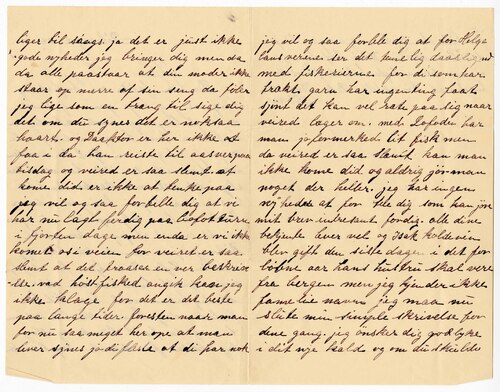 liger til sengs. ja det er juist ikke
gode nyheder jeg bringer dig men da
da alle paastaar at din moder ikke
staar op merre af sin seng da føler
jeg lige som en trang til sige dig
det om du synes det er noksaa
haart. og Daaktor er her ikke at
faa i da han reiste til
tisdag og veired er saa slemt. at
kome did er ikke at tenke paa
jeg vil og saa fortelle dig at vi
har nu lagt ferdig paa Lofotturen
i fjorten dage men enda er vi ikke
komet os i veien for veiret er saa
slemt at det
vad høstfisked angik kan jeg
ikke klage for det er det beste
paa lange tider. foresten naar man
faar nu saa meget her ope at man
lever synes jo de fleste at de har nok
jeg vil og saa fortelle dig at for Helge
lansverierne ser det temelig daarlig ud
med fiskerierne for di som har
trukt garn har ingenting faatt
sjønt det kan vel rette paa sig naar
veired lager om. med Lofoden har
man jo formerked lit fisk men
da veired er saa slemt kan man
ikke kome did og aldrig gjør man
noget der heller. jeg har ingen
nyheder at for telle dig som kan gjøre
mit brev intresant for dig. alle dine
bekjente lever vel og Isak
blev gift den siste dagen i det for
løbne aar hans hustru skal vere
fra bergen men jeg kjender ikke
famelie navn jeg maa nu
slutte min simple skrivelse for
denne gang. jeg ønsker dig god lykke
i dit nye kald og om du skulde